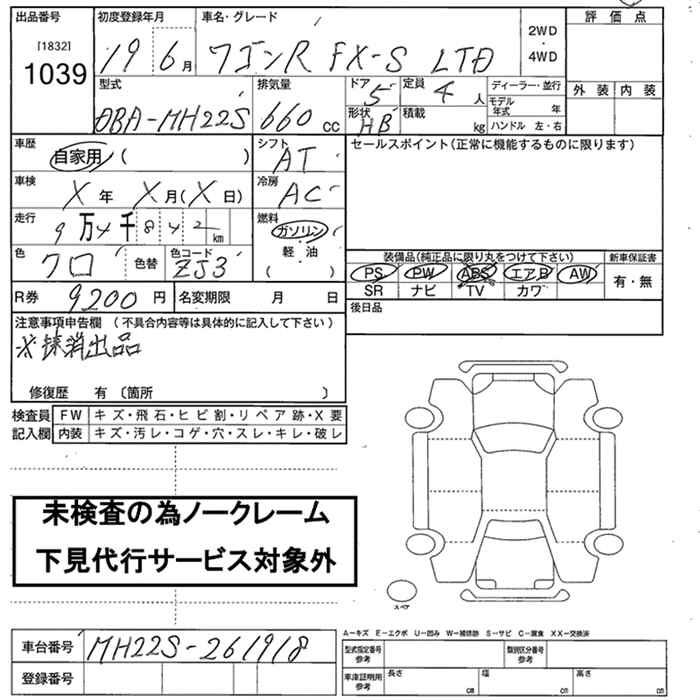 出品番号 初度登録年月 車名・グレード 評価点
[1832] 1039 19 6月 ワゴンR FX-S LTD 2WD・4WD 外装 内装
型式 排気量 ドア 5 定員 4人 ディーラー・並行
DBA-MH22S 660cc 形状 HB 積載 kg モデル年式 年
ハンドル 左・右
車歴 自家用( ) シフト AT セールスポイント(正常に機能するものに限ります)
車検 X年 X月(X日) 冷房 AC
走行 9万4千842km 燃料 ガソリン・軽・油( )
色 クロ 色替 色コード ZJ3 装備品(純正品に限り丸をつけて下さい) 新車保証書
PS PW ABS エアB AW 有・無
SR ナビ TV カワ
R券 9200円 名変期限 月 日
後日品
注意事項申告欄(不具合内容等は具体的に記入して下さい)
※抹消出品
修復歴 有 〔箇所 〕
検査員 FW キズ・飛石・ヒビ割・リペア跡・X要
記入欄 内装 キズ・汚レ・コゲ・穴・スレ・キレ・破レ
未検査の為ノークレーム
下見代行サービス対象外
スペア
A-キズ E-エクボ U-凹み W-補修跡 S-サビ C-腐食 XX-交換済
車台番号 MH22S-261918
登録番号
型式指定番号 参考 類別区分番号 参考
車庫証明用 参考 長さ cm 幅 cm 高さ cm